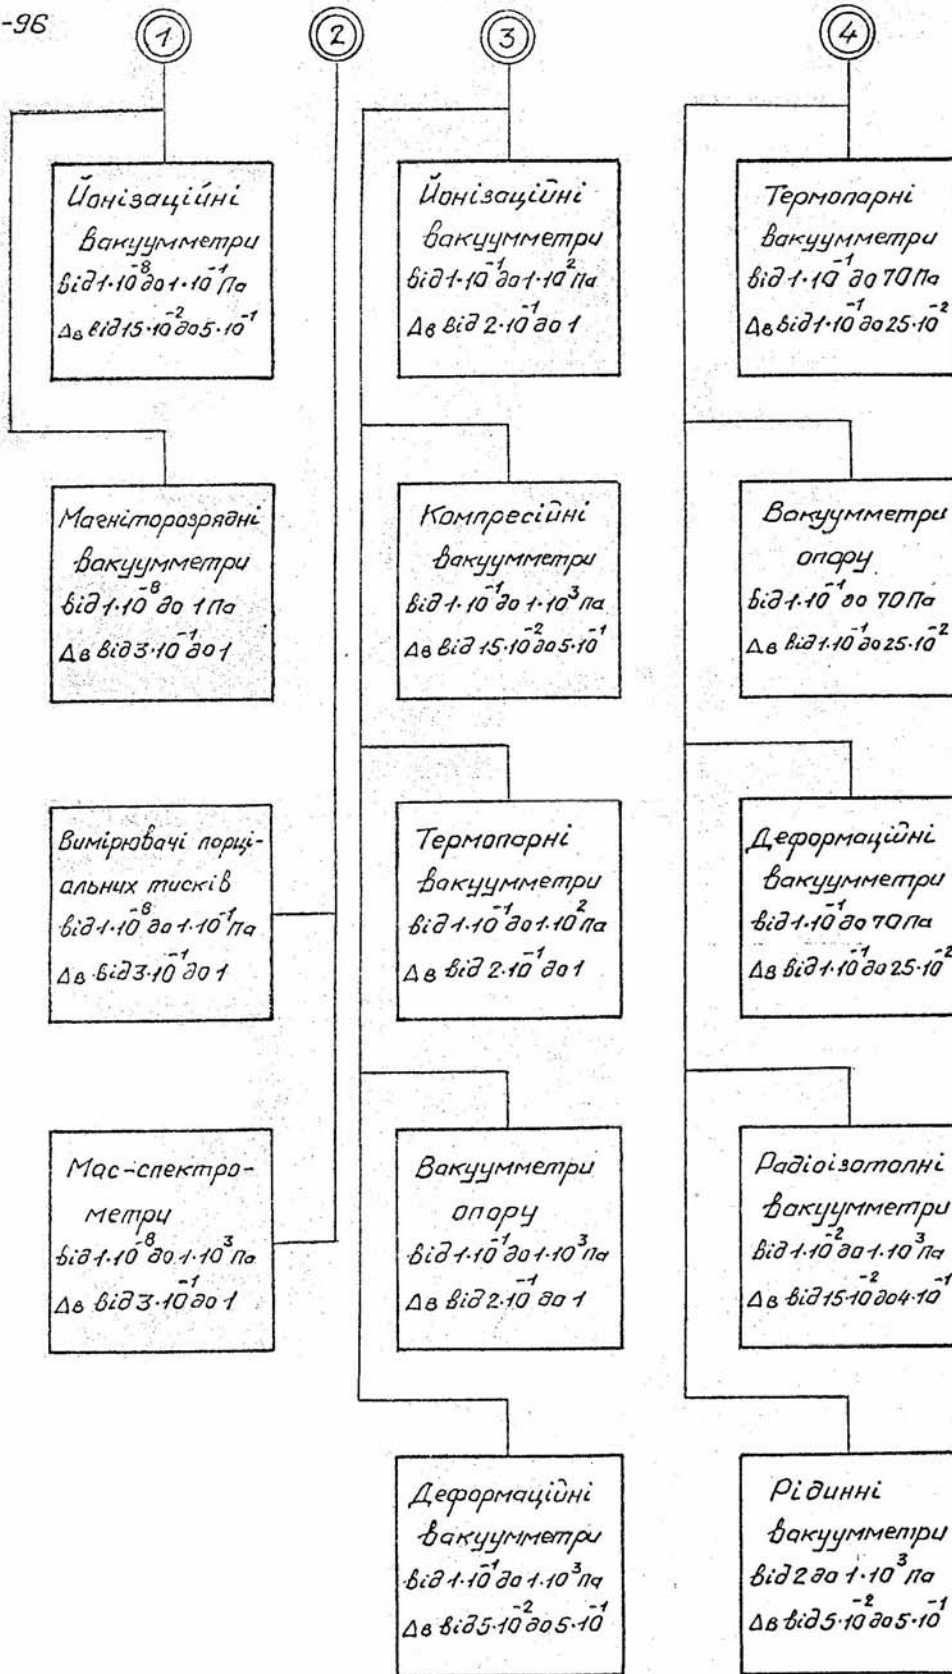 -96
1
2
3
4
Йонізаційні
вакуумметри
від 1·10⁻⁸ до 1·10⁻¹ Па
Δв від 15·10⁻² до 5·10⁻¹
Магніторозрядні
вакуумметри
від 1·10⁻⁸ до 1 Па
Δв від 3·10⁻¹ до 1
Вимірювачі порці-
альних тисків
від 1·10⁻⁸ до 1·10⁻¹ Па
Δв від 3·10⁻¹ до 1
Мас-спектро-
метри
від 1·10⁻⁸ до 1·10³ Па
Δв від 3·10⁻¹ до 1
Йонізаційні
вакуумметри
від 1·10⁻¹ до 1·10² Па
Δв від 2·10⁻¹ до 1
Компресійні
вакуумметри
від 1·10⁻¹ до 1·10³ Па
Δв від 15·10⁻² до 5·10⁻¹
Термопарні
вакуумметри
від 1·10⁻¹ до 1·10² Па
Δв від 2·10⁻¹ до 1
Вакуумметри
опору
від 1·10⁻¹ до 1·10³ Па
Δв від 2·10⁻¹ до 1
Деформаційні
вакуумметри
від 1·10⁻¹ до 1·10³ Па
Δв від 5·10⁻² до 5·10⁻¹
Термопарні
вакуумметри
від 1·10⁻¹ до 70 Па
Δв від 1·10⁻¹ до 25·10⁻²
Вакуумметри
опору
від 1·10⁻¹ до 70 Па
Δв від 1·10⁻¹ до 25·10⁻²
Деформаційні
вакуумметри
від 1·10⁻¹ до 70 Па
Δв від 1·10⁻¹ до 25·10⁻²
Радіоізотопні
вакуумметри
від 1·10⁻² до 1·10³ Па
Δв від 15·10⁻² до 4·10⁻¹
Рідинні
вакуумметри
від 2 до 1·10³ Па
Δв від 5·10⁻² до 5·10⁻¹